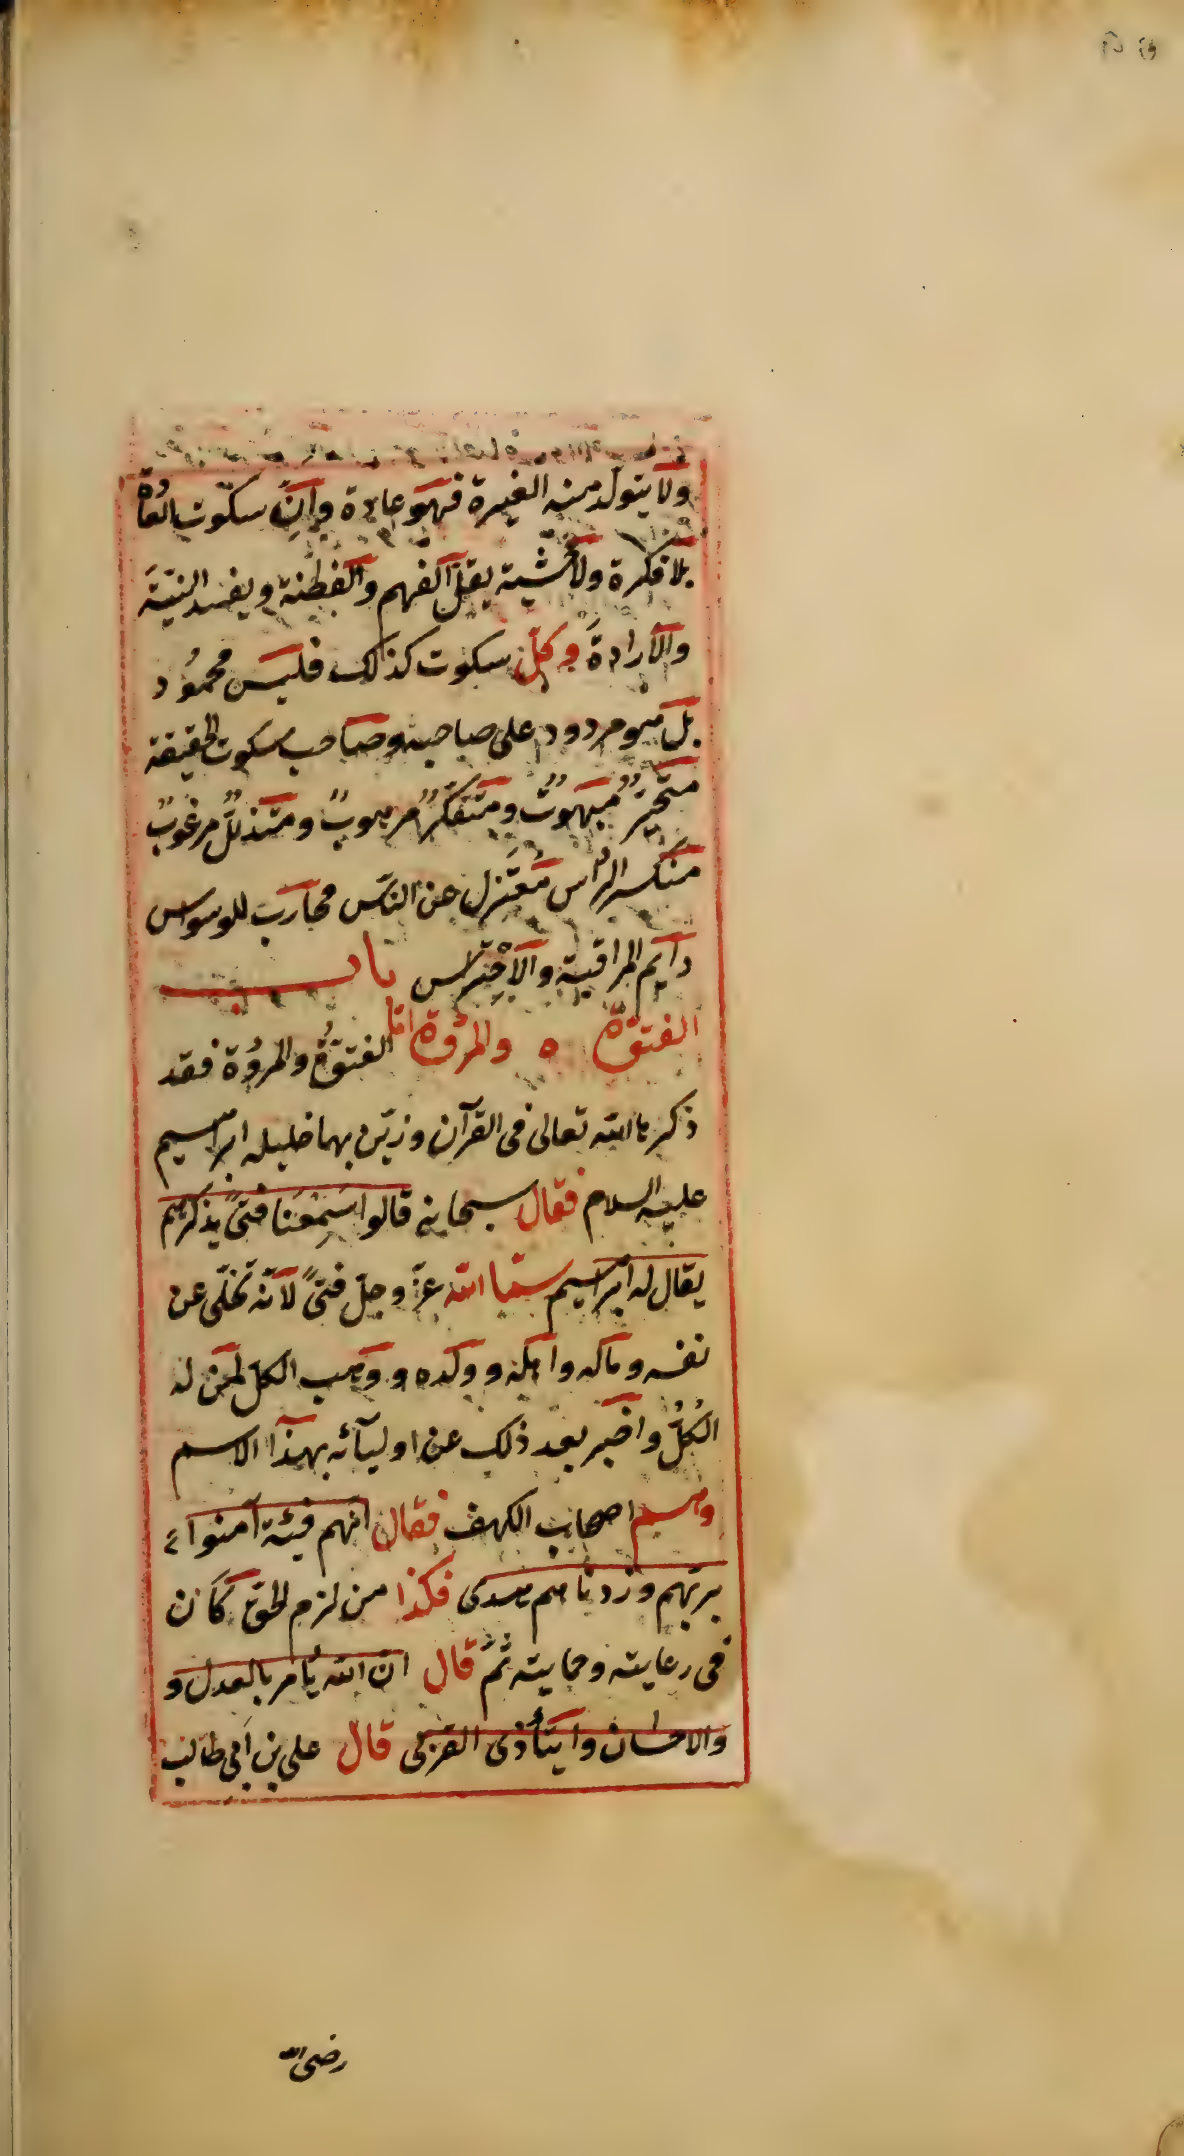 ولا يتولد منه الغيرة فهو عادة وان سكوت العادة
بلا فكرة ولا خشية يقل الفهم والفطنة ويفسد النيّة
والارادة وكلّ سكوت كذلك فليس محمُود
بل هو مردود على صاحبه وصاحب سكوت الحقيقة
متحيّرٌ مبهوتٌ ومتفكّرٌ مرهوبٌ ومتذللٌ مرغوبٌ
منكسر الرأس مُعتَزل عن الناس محارب للوسواس
دايم المراقبة والاحتراس باب
الفتوّة ه والمروّة امّا الفتوّةُ والمروُة فقد
ذكرها الله تعالى فى القرآن وزيّن بهما خليله ابراهيم
عليه السلام فقال سبحانه قالوا سَمِعْنَا فتىً يذكرهم
يقال له ابراهيم سمّاه الله عزّ وجلّ فتىً لانّه تخلّى عن
نفسه وماله واهله وولده ووهب الكل لمن له
الكُلُّ واخبر بعد ذلك عن اوليآئه بهذا الاسم
وهم اصحاب الكهف فقال انهم فيئة آمنوا
بربّهم وزدناهم هدى فكذا من لزم الحق كان
فى رعايته وحمايته ثمّ قال ان الله يأمر بالعدل و
والاحسان وايتآذى القربى قال على بن ابى طالب
رضى الله